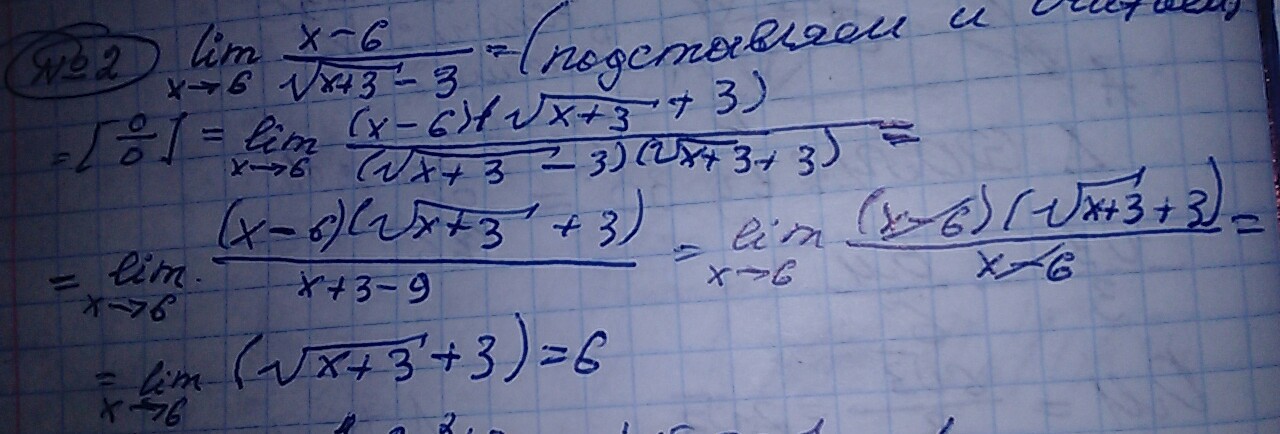 №2 lim x→6 (x-6)/(√(x+3) - 3) = (подставляем и считаем)
= [0/0] = lim x→6 ((x-6)(√(x+3) + 3))/((√(x+3) - 3)(√(x+3) + 3)) =
= lim x→6 ((x-6)(√(x+3) + 3))/(x+3-9) = lim x→6 ((x-6)(√(x+3) + 3))/(x-6) =
= lim x→6 (√(x+3) + 3) = 6